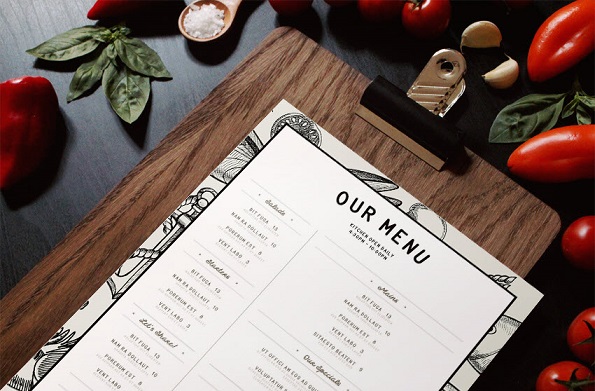 OUR MENU
KITCHEN OPEN DAILY
4:30PM - 10:00PM
Salads
BIT FUGA 13
HAM RA DOLLAUT 10
PORERUM EST 8
VENT LABO 3
Starters
BIT FUGA 13
HAM RA DOLLAUT 10
PORERUM EST 8
VENT LABO 3
Let's Share!
BIT FUGA 13
HAM RA DOLLAUT 10
PORERUM EST 8
VENT LABO
Mains
BIT FUGA 13
HAM RA DOLLAUT 10
PORERUM EST 8
VENT LABO 3
DITAESTO BEATENT 9
Our Specials
UT OFFICIAM EOS AD
VOLUPTATUR